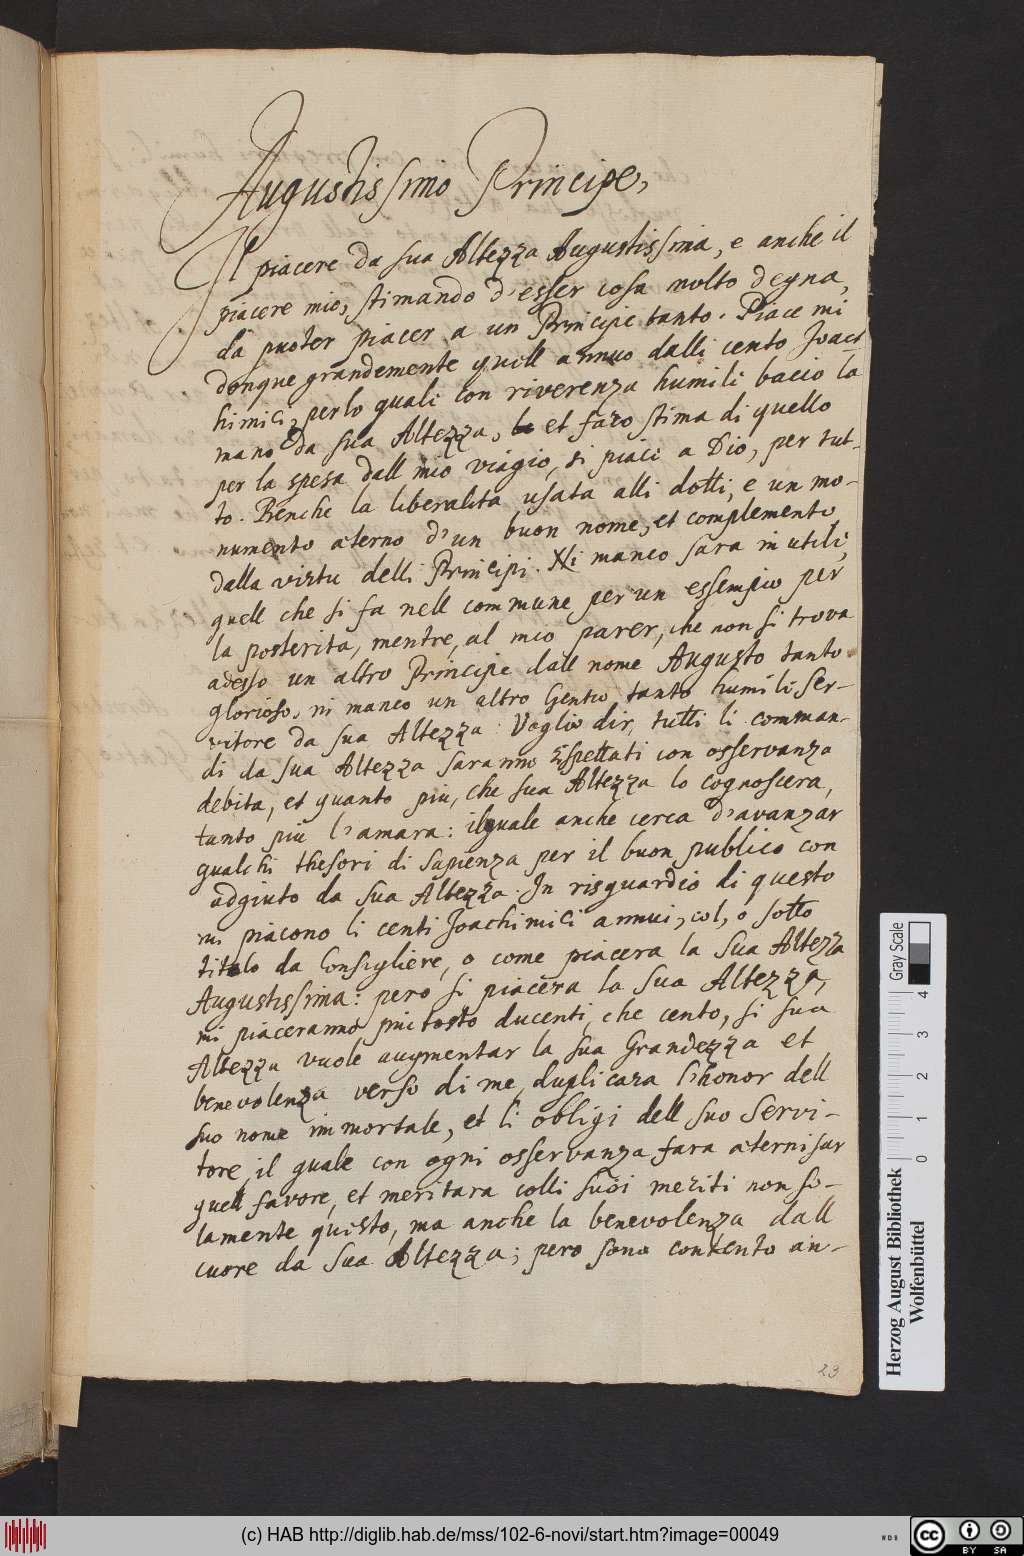 Augustissimo Principe,
Il piacere da sua Altezza Augustissima, e anche il
piacere mio, stimando d'esser cosa molto degna,
da puoter piacer a un Principe tanto. Piace mi
donque grandemente quell annuo dalli cento Joac-
himici, perlo quali con riverenza humili bacio la
mano da sua Altezza, et faro stima di quello
per la spesa dall mio viagio, si piaci a Dio, per tut-
to. Benche la liberalita usata alli dotti, e un mo-
numento aterno d'un buon nome, et complemento
dalla virtu delli Principi. Ni manco sara inutili,
quell che si fa nell commune, per un essempio per
la posterita, mentre, al mio parer, che non si trova
adesso un altro Principe dall nome Augusto tanto
glorioso, ni manco un altro Gentio tanto humili ser-
vitore da sua Altezza. Voglio dir, tutti li comman-
di da sua Altezza saranno Espettati con osservanza
debita, et quanto piu, che sua Altezza lo cognoscera,
tanto piu l'amara: ilquale anche cerca d'avanzar
qualchi thesori di sapienza per il buon publico con
adgiuto da sua Altezza. In risguardio di questo
mi piacono li centi Joachimici annui, col, o sotto
titolo da Consigliere, o come piacera la sua Altezza
Augustissima: pero si piacera la sua Altezza,
mi piaceranno piu tosto ducenti, che cento, si sua
Altezza vuole augmentar la sua Grandezza et
benevolenza verso di me, duplicara l'honor dell
suo nome immortale, et li obligi dell suo Servi-
tore, il quale con ogni osservanza fara aternisar
quell favore, et meritara colli suoi meriti non so-
lamente questo, ma anche la benevolenza dall
cuore da sua Altezza; pero sono contento an-
23
Gray Scale
0 1 2 3 4
Herzog August Bibliothek
Wolfenbüttel
(c) HAB http://diglib.hab.de/mss/102-6-novi/start.htm?image=00049
WDB
cc BY SA